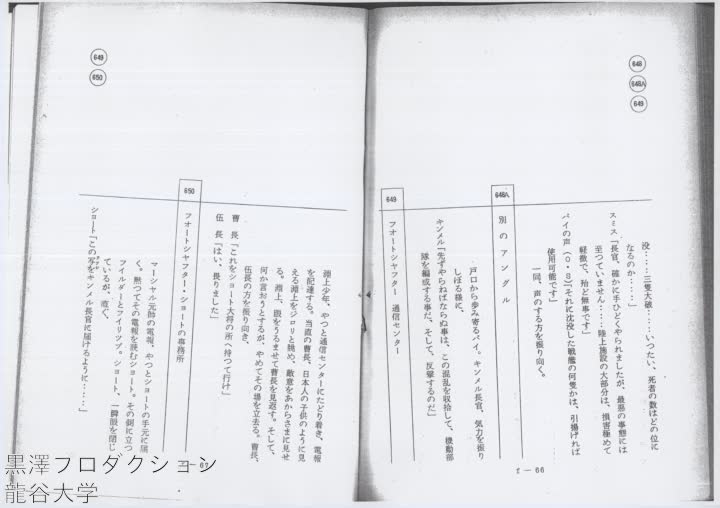 648
648A
649
没……三隻大破……いつたい、死者の数はどの位に
なるのか……」
スミス「長官、確かに手ひどくやられましたが、最悪の事態には
至つていません……陸上施設の大部分は、損害極めて
軽微で、殆ど無事です」
パイの声（O・S）「それに沈没した戦艦の何隻かは、引揚げれば
使用可能です」
一同、声のする方を振り向く。
648A
別のアングル
戸口から歩み寄るパイ。キンメル長官、気力を振り
しぼる様に、
キンメル「先ずやらねばならぬ事は、この混乱を収拾して、機動部
隊を編成する事だ、そして、反撃するのだ」
649
フオートシヤフター 通信センター
649
650
淵上少年、やつと通信センターにたどり着き、電報
を配達する。当直の曹長、日本人の子供のように見
える淵上をジロリと眺め、敵意をあからさまに見せ
る。淵上、眼をうるませて曹長を見返す。そして、
何か言おうとするが、やめてその場を立去る。曹長、
伍長の方を振り向き、
曹長「これをショート大将の所へ持つて行け」
伍長「はい、畏りました」
650
フオートシヤフター・ショートの事務所
マーシャル元帥の電報、やつとショートの手元に届
く。黙つてその電報を読むショート。その側に立つ
フイルダーとフイリツプ。ショート、一瞬眼を閉じ
ているが、直ぐ、
ショート「この写をキンメル長官に届けるように……」
黒澤プロダクション
龍谷大学